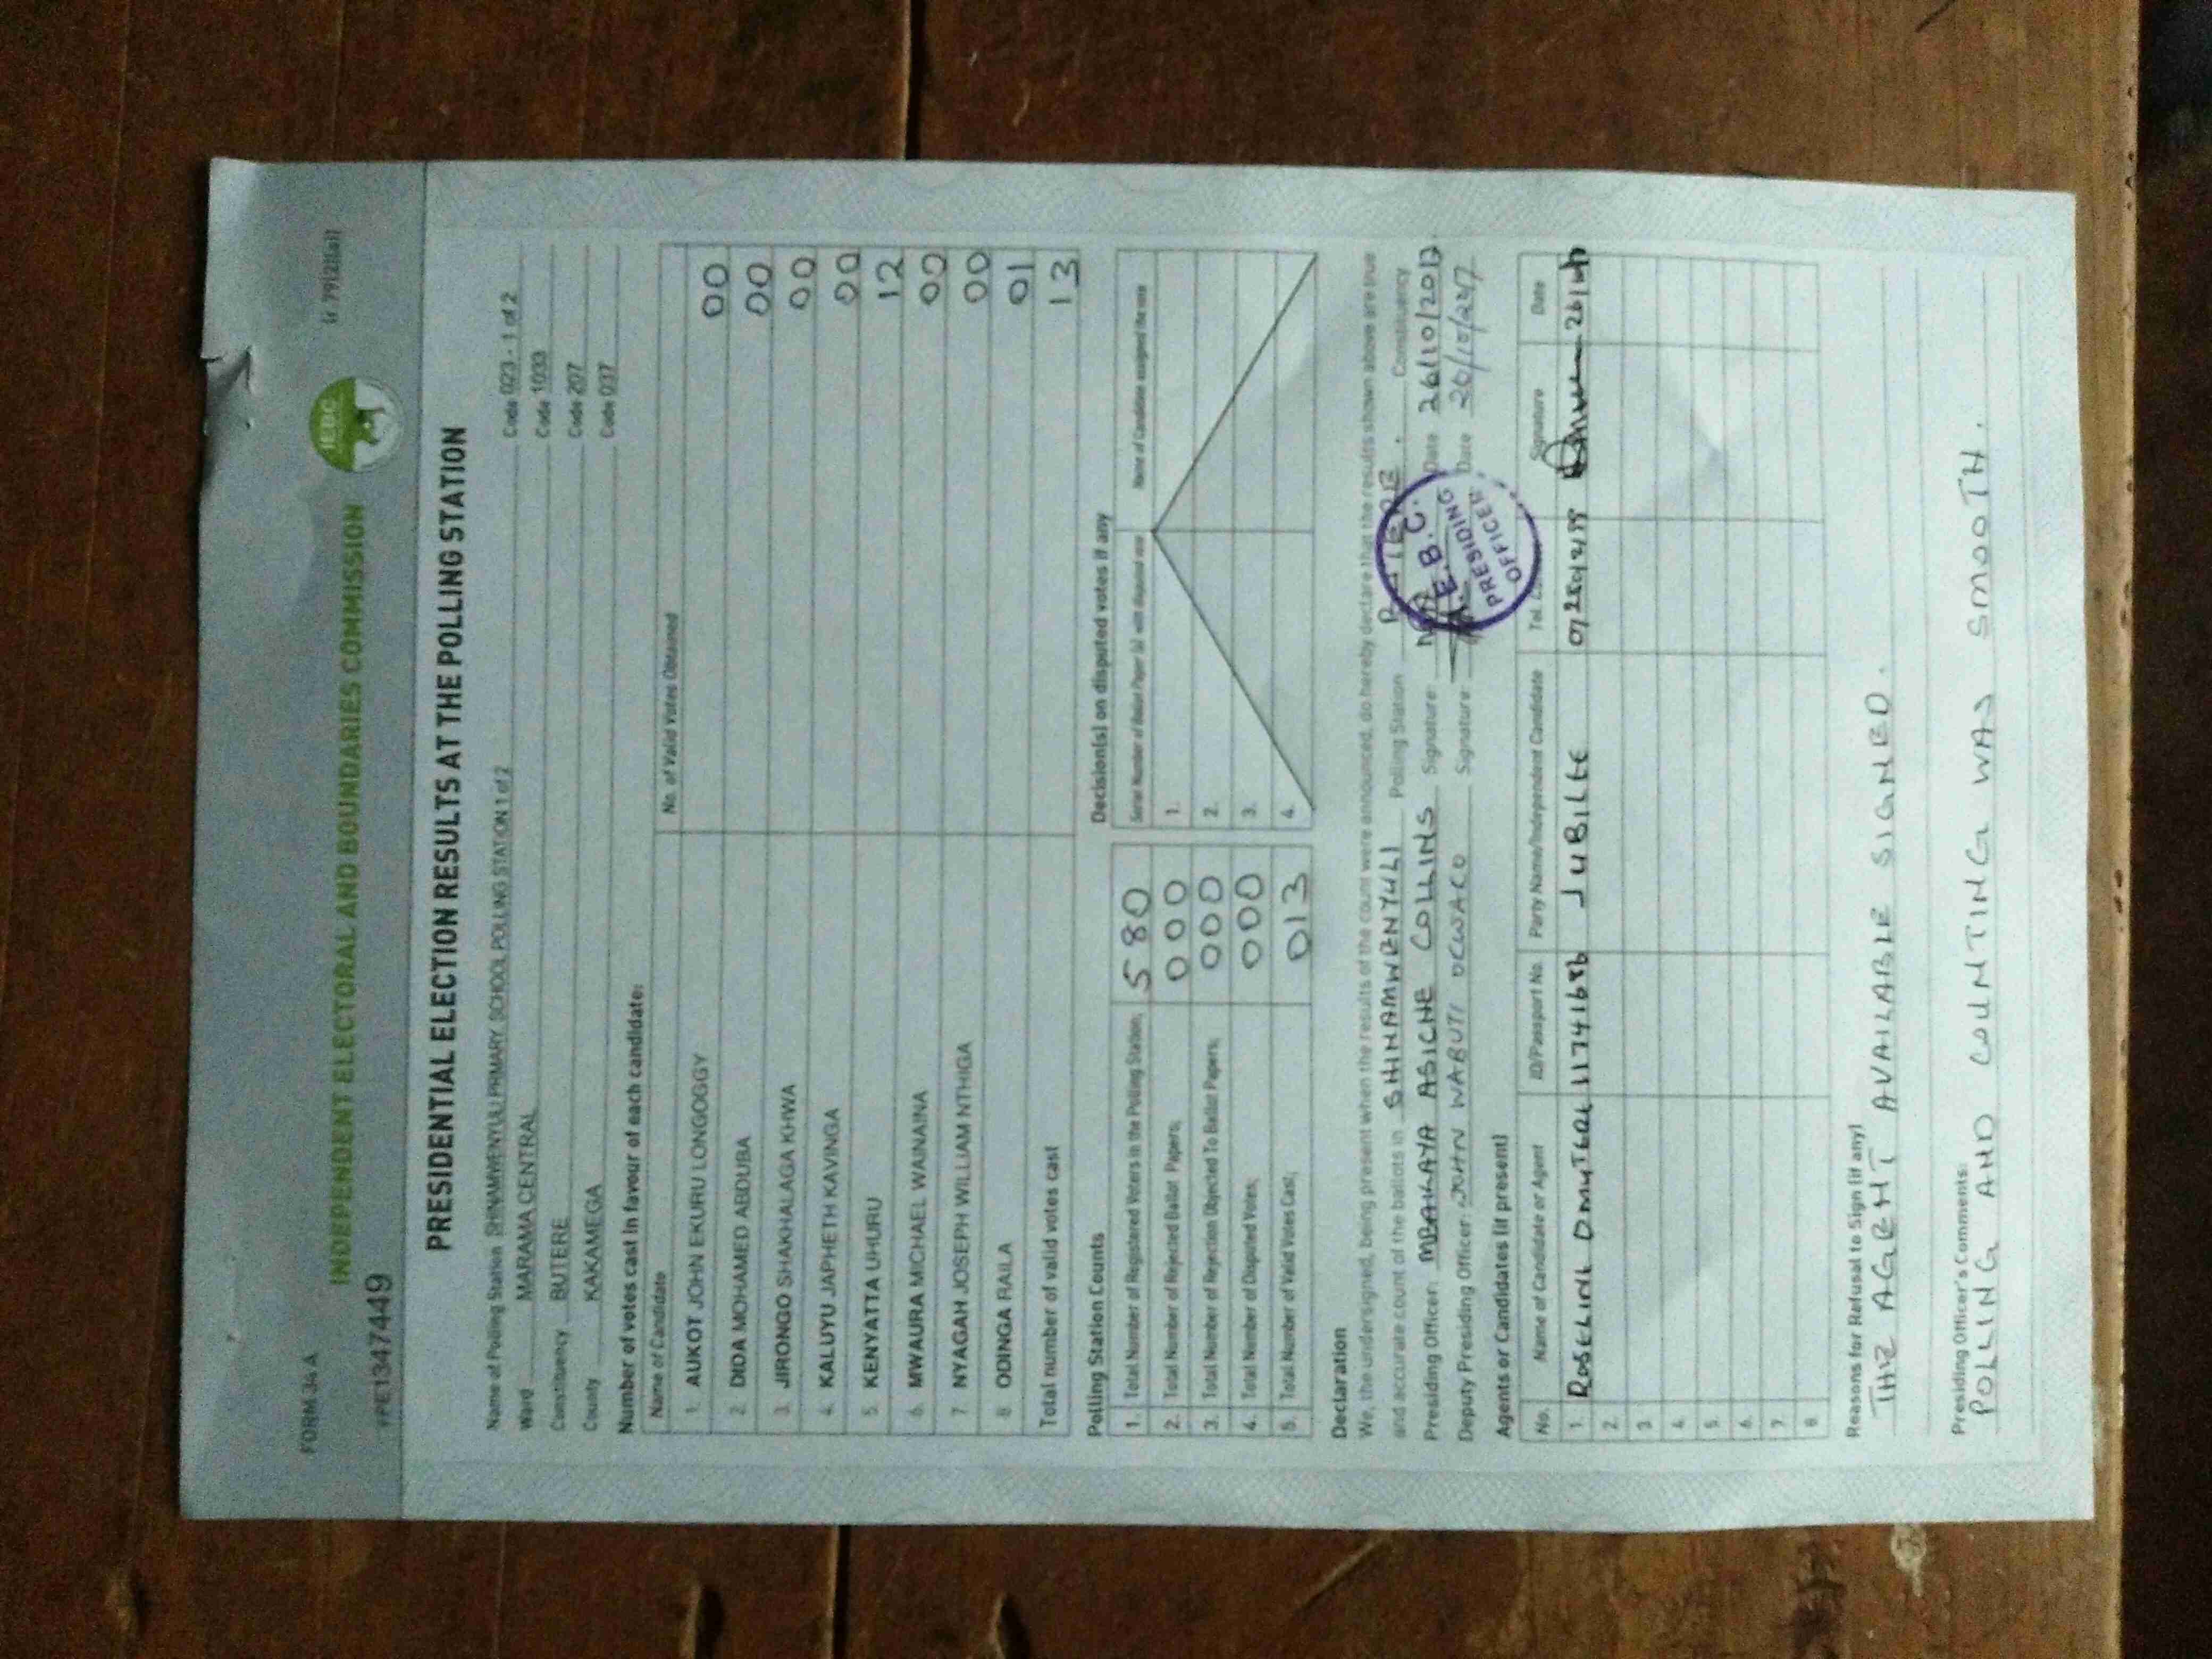 FORM 34A
(r 79(2)(a))
INDEPENDENT ELECTORAL AND BOUNDARIES COMMISSION
IEBC
PRESIDENTIAL ELECTION RESULTS AT THE POLLING STATION
Name of Polling Station SHINAMWENYULI PRIMARY SCHOOL POLLING STATION 1 of 2 Code 023 - 1 of 2
Ward MARAMA CENTRAL Code 1033
Constituency BUTERE Code 207
County KAKAMEGA Code 037
Number of votes cast in favour of each candidate:
Name of Candidate No. of Valid Votes Obtained
1. AUKOT JOHN EKURU LONGOGGY 00
2. DIDA MOHAMED ABDUBA 00
3. JIRONGO SHAKHALAGA KHWA 00
4. KALUYU JAPHETH KAVINGA 00
5. KENYATTA UHURU 12
6. MWAURA MICHAEL WAINAINA 00
7. NYAGAH JOSEPH WILLIAM NTHIGA 00
8. ODINGA RAILA 01
Total number of valid votes cast 13
Polling Station Counts
1. Total Number of Registered Voters in the Polling Station; 580
2. Total Number of Rejected Ballot Papers; 000
3. Total Number of Rejection Objected To Ballot Papers; 000
4. Total Number of Disputed Votes; 000
5. Total Number of Valid Votes Cast; 013
Decision(s) on disputed votes if any
Serial Number of Ballot Paper (s) with disputed vote Name of Candidate assigned the vote
1.
2.
3.
4.
Declaration
We, the undersigned, being present when the results of the count were announced, do hereby declare that the results shown above are true
and accurate count of the ballots in SHINAMWENYULI Polling Station Constituency
Presiding Officer: MBAKAYA ASICHE COLLINS Signature: Date 26/10/2017
Deputy Presiding Officer: JOHN WABUTI Signature: Date
I.E.B.C.
PRESIDING
OFFICER
Agents or Candidates (if present)
No. Name of Candidate or Agent ID/Passport No. Party Name/Independent Candidate Tel. Signature Date
1. JUBILEE
2.
3.
4.
5.
6.
7.
8.
Reasons for Refusal to Sign (if any)
THE AGENT AVAILABLE SIGNED.
Presiding Officer's Comments:
POLLING AND COUNTING WAS SMOOTH.